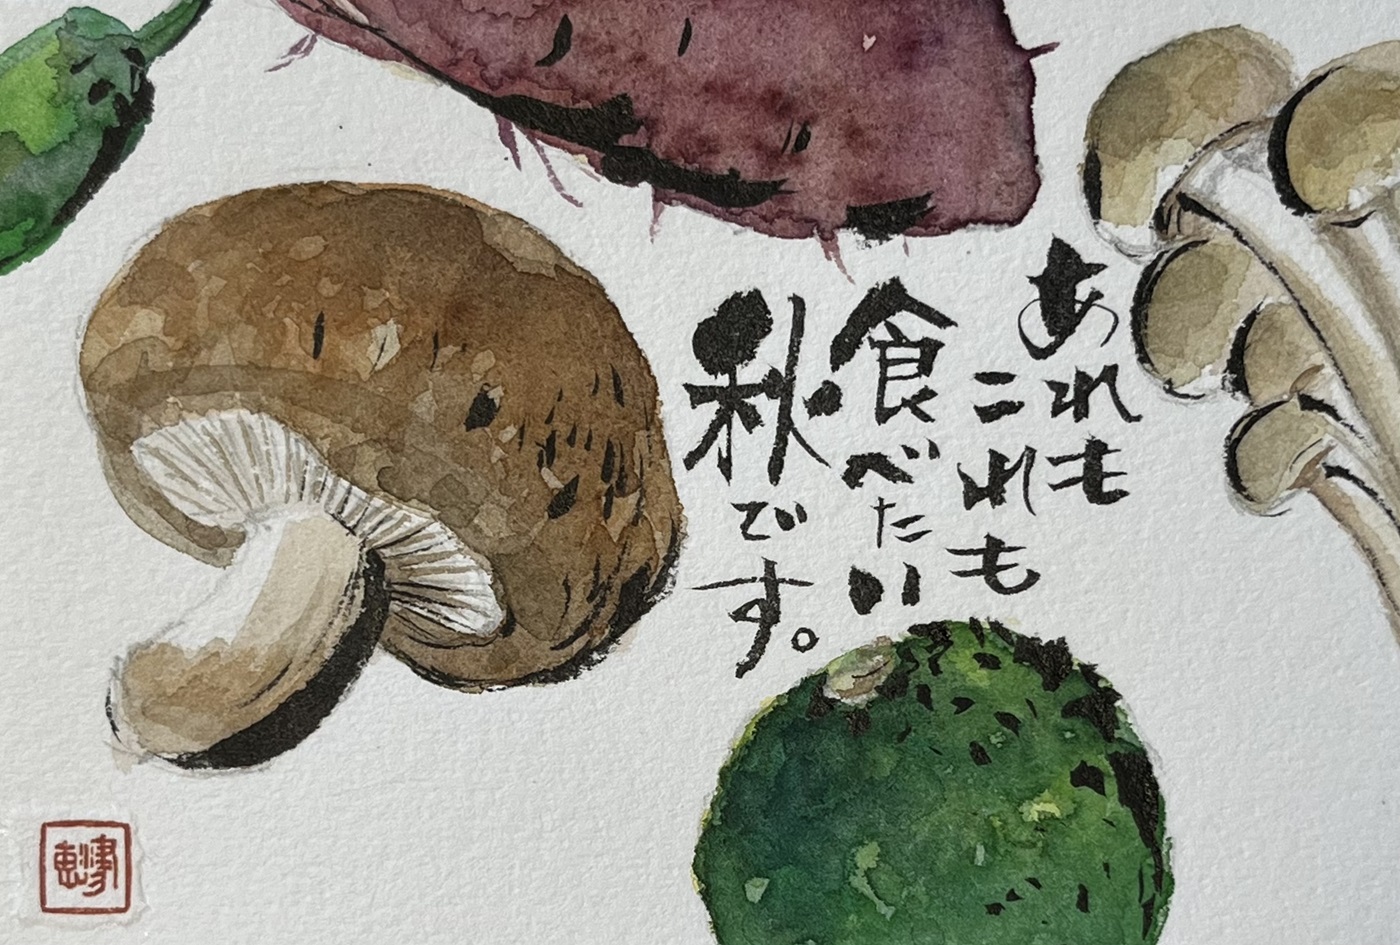 あれも
これも
食べたい
秋です。